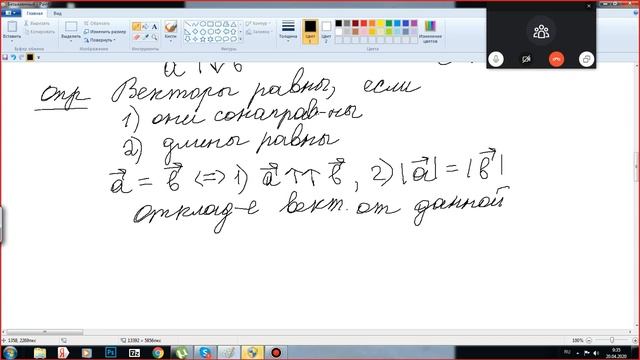 Безымянный - Paint
Файл Главная Вид
Вставить Выделить Обрезать Изменить размер Повернуть Кисти Фигуры Контур Заливка Толщина Цвет 1 Цвет 2 Изменение цветов
Буфер обмена Изображение Инструменты Фигуры Цвета
a ↑↓ b
опр Векторы равны, если
1) они сонаправ-ны
2) длины равны
a⃗ = b⃗ <=> 1) a⃗ ↑↑ b⃗, 2) |a⃗| = |b⃗|
отклад-е вект. от данной
1358, 2269пкс 13392 × 5856пкс 100%
RU 9:35
20.04.2020